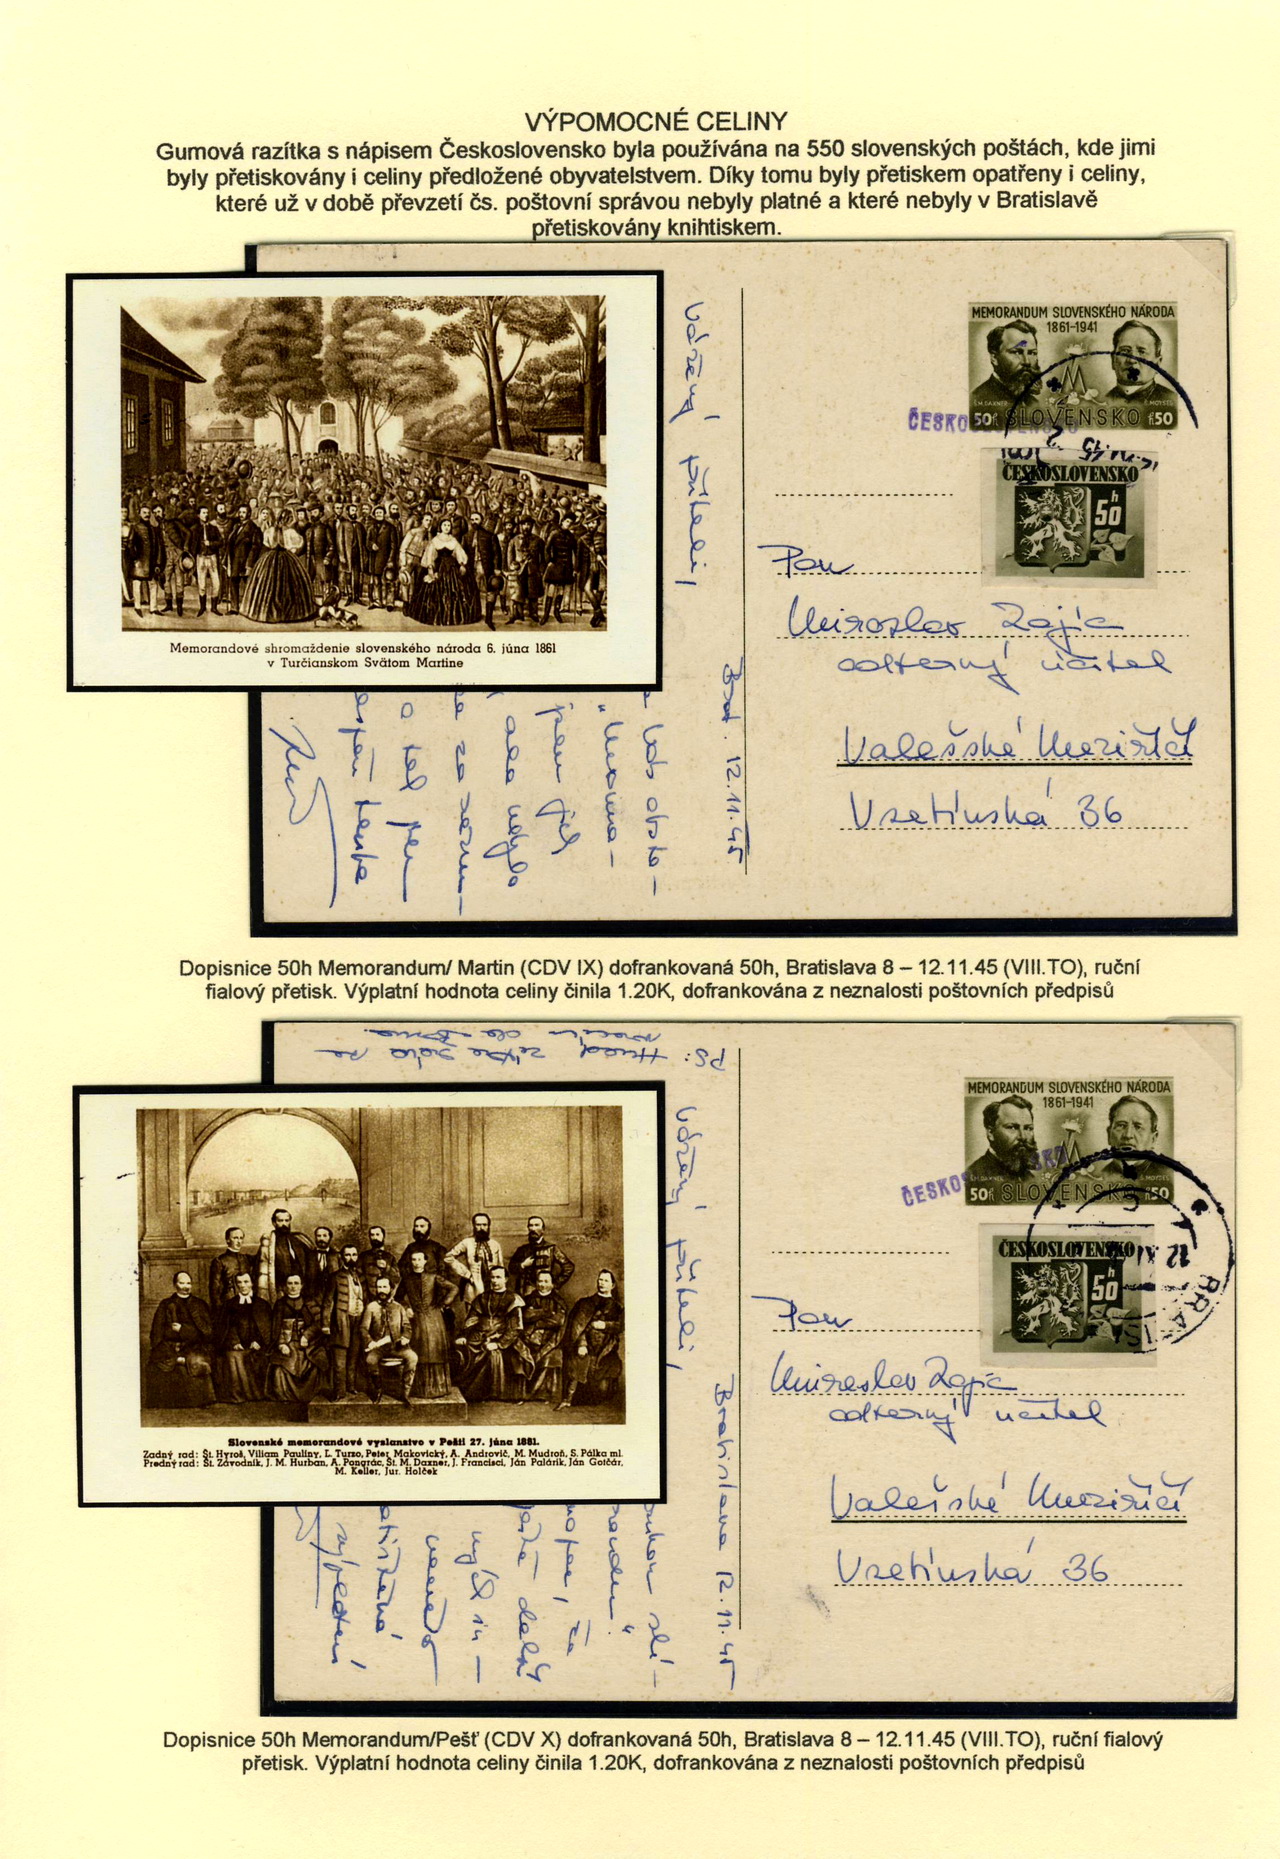 VÝPOMOCNÉ CELINY
Gumová razítka s nápisem Československo byla používána na 550 slovenských poštách, kde jimi
byly přetiskovány i celiny předložené obyvatelstvem. Díky tomu byly přetiskem opatřeny i celiny,
které už v době převzetí čs. poštovní správou nebyly platné a které nebyly v Bratislavě
přetiskovány knihtiskem.
Memorandové shromaždenie slovenského národa 6. júna 1861
v Turčianskom Svätom Martine
Vážený příteli,
Brat. 12.11.45
MEMORANDUM SLOVENSKÉHO NÁRODA
1861-1941
ŠM.DAXNER
Š.MOYSES
50h SLOVENSKO h50
ČESKOSLOVENSKO
ČESKOSLOVENSKO
50h
Pan
Miroslav Zajíc
odborný učitel
Valašské Meziříčí
Vsetínská 36
Dopisnice 50h Memorandum/ Martin (CDV IX) dofrankovaná 50h, Bratislava 8 – 12.11.45 (VIII.TO), ruční
fialový přetisk. Výplatní hodnota celiny činila 1.20K, dofrankována z neznalosti poštovních předpisů
PS:
Slovenské memorandové vyslanstvo v Pešti 27. júna 1861.
Zadný rad: Št. Hyroš, Viliam Pauliny, Ľ. Turzo, Peter Makovický, A. Androvič, M. Mudroň, S. Pálka ml.
Predný rad: Št. Závodník, J. M. Hurban, A. Pongrác, Št. M. Daxner, J. Francisci, Ján Palárik, Ján Gotčár,
M. Keller, Jur. Holček
Vážený příteli,
Bratislava 12.11.45
MEMORANDUM SLOVENSKÉHO NÁRODA
1861-1941
ŠM.DAXNER
Š.MOYSES
50h SLOVENSKO h50
ČESKOSLOVENSKO
ČESKOSLOVENSKO
50h
Pan
Miroslav Zajíc
odborný učitel
Valašské Meziříčí
Vsetínská 36
Dopisnice 50h Memorandum/Pešť (CDV X) dofrankovaná 50h, Bratislava 8 – 12.11.45 (VIII.TO), ruční fialový
přetisk. Výplatní hodnota celiny činila 1.20K, dofrankována z neznalosti poštovních předpisů